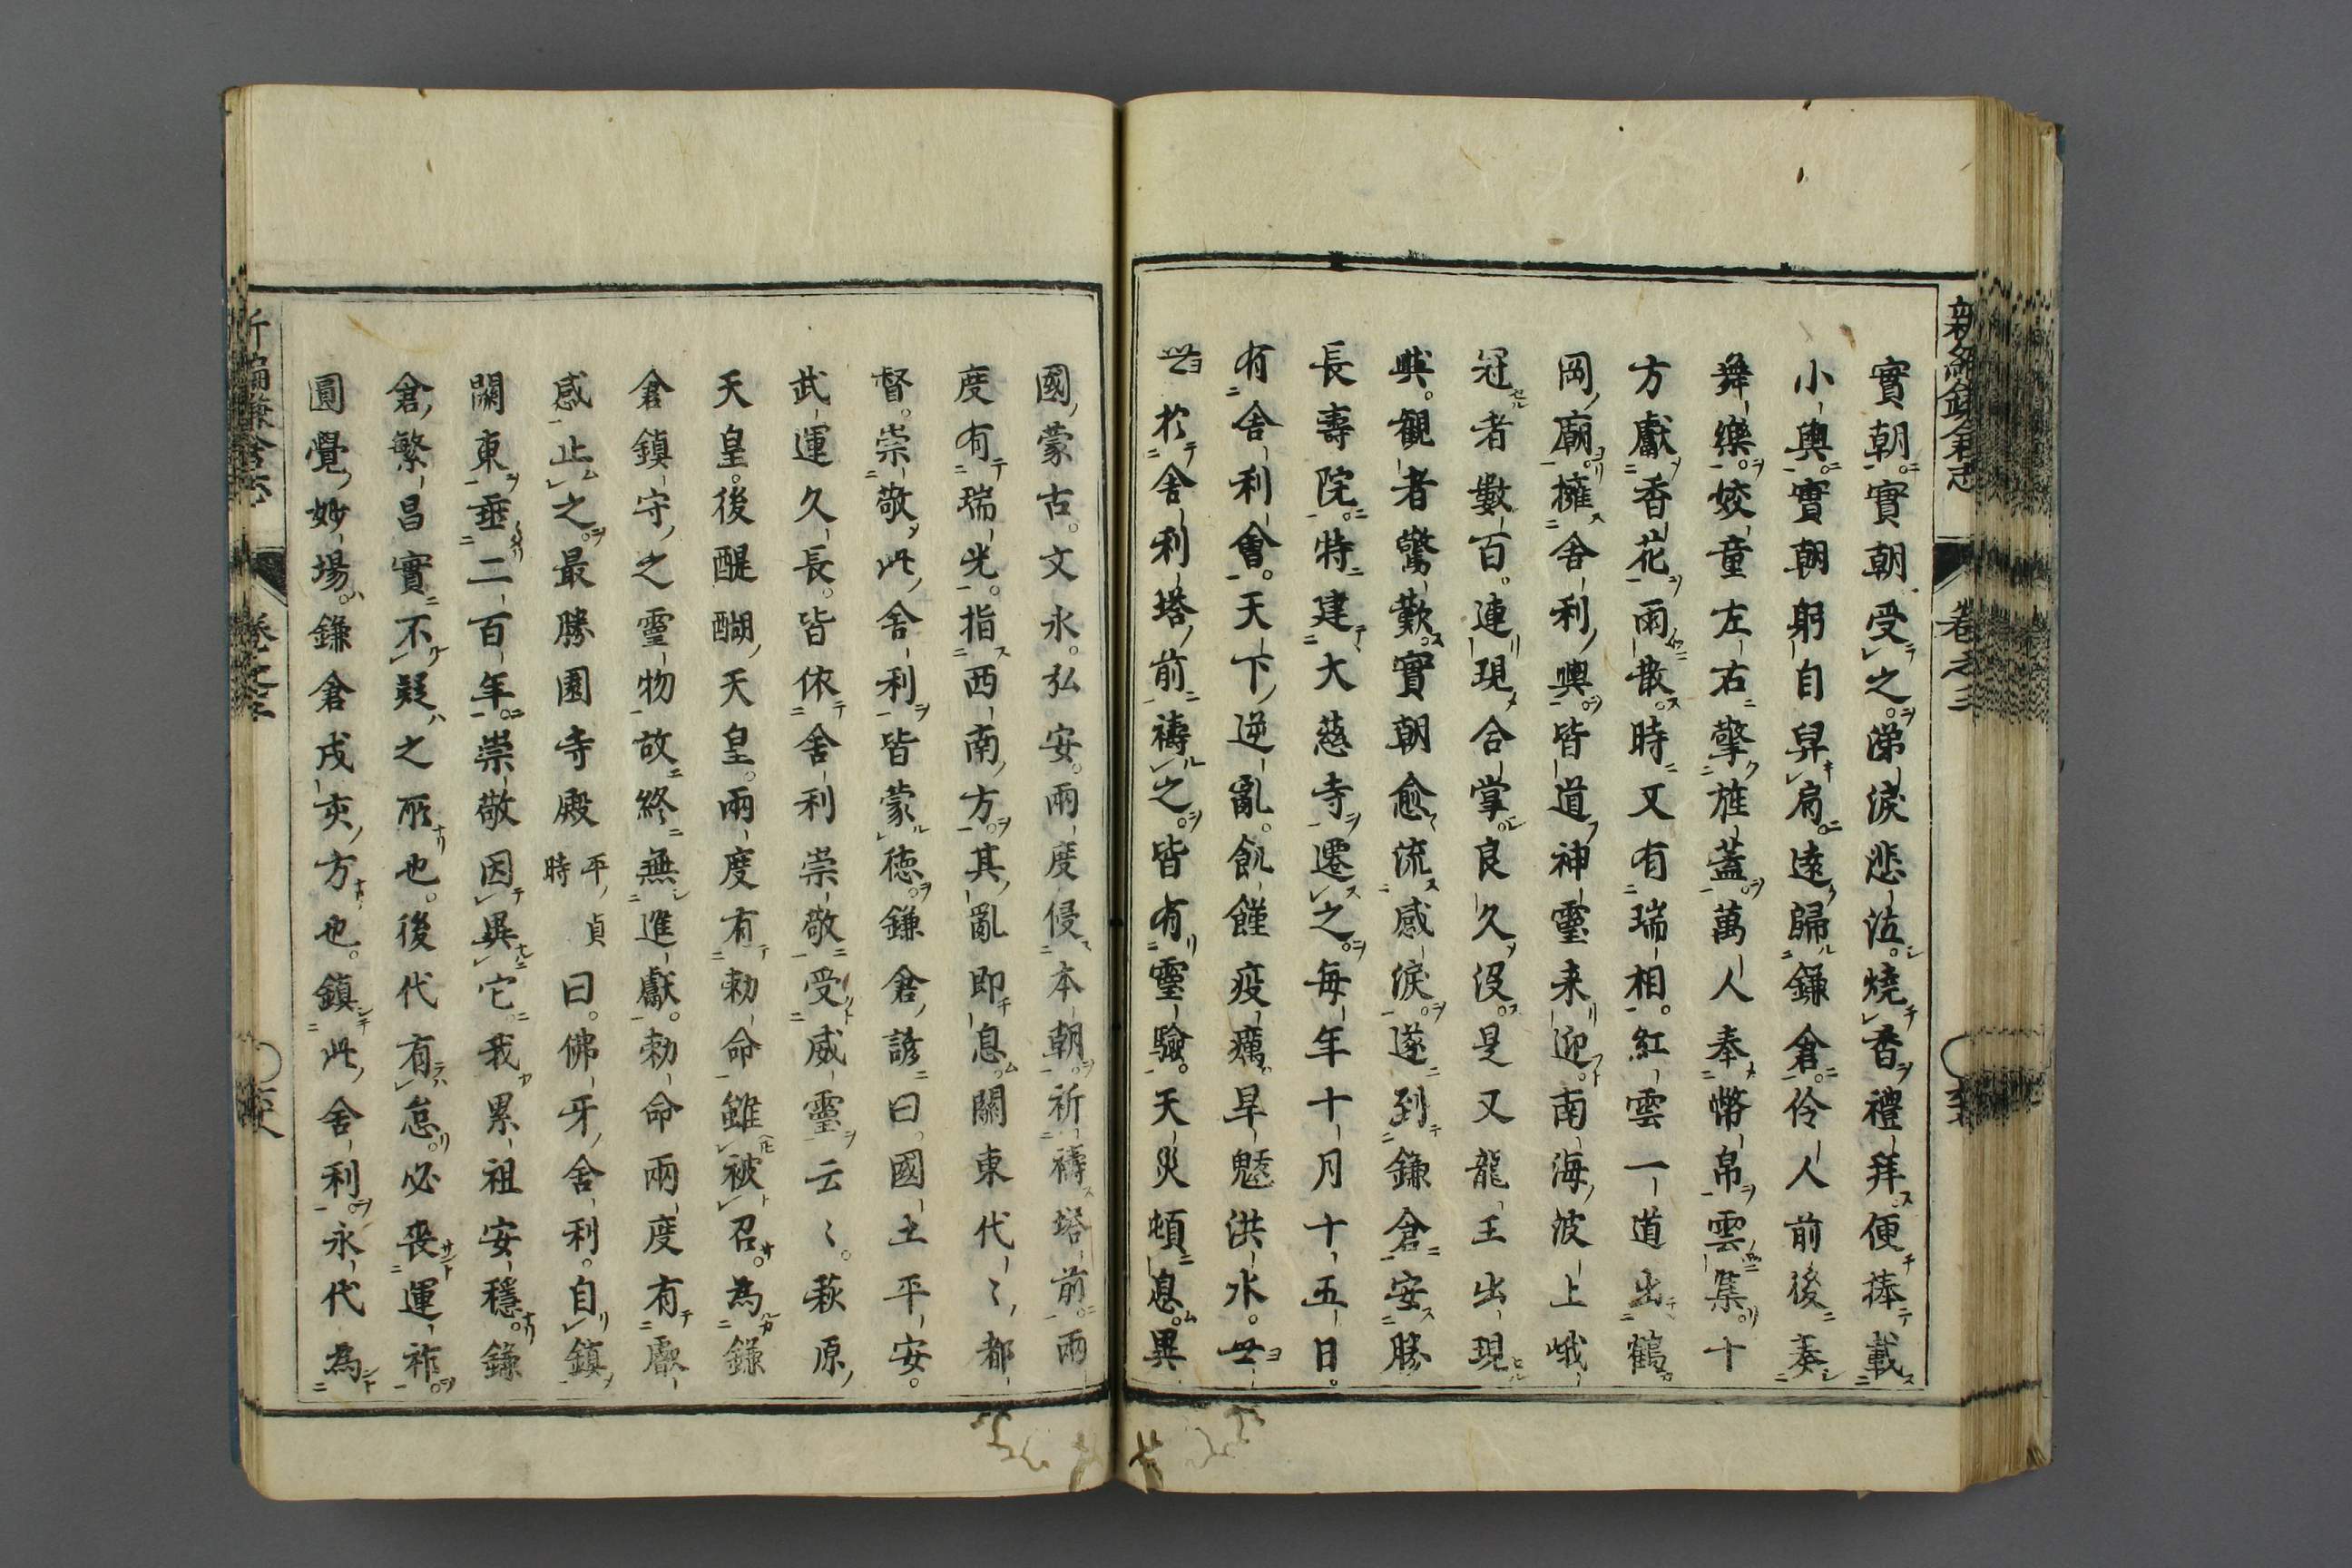 實朝實朝受之涕淚悲泣燒香禮拜便捧載
小輿實朝躬自舁肩遠歸鎌倉伶人前後奏
舞樂姣童左右擎旌蓋萬人奉幣帛雲集十
方獻香花雨散時又有瑞相紅雲一道出鶴
岡廟擁舍利輿皆道神靈来迎南海波上峨
冠者數百連現合掌良久没是又龍王出現
與觀者驚歎實朝愈流感淚遂到鎌倉安勝
長壽院特建大慈寺遷之每年十月十五日
有舍利會天下逆亂飢饉疫癘旱魃洪水世
世於舍利塔前禱之皆有靈驗天災頓息異
國蒙古文永弘安兩度侵本朝祈禱塔前兩
度有瑞光指西南方其亂即息關東代〻都
督崇敬此舍利皆蒙德鎌倉諺曰國土平安
武運久長皆依舍利崇敬受威靈云〻萩原
天皇後醍醐天皇兩度有勅命雖被召為鎌
倉鎮守之靈物故終無進獻勅命兩度有感
感止之最勝園寺殿平貞時曰佛牙舍利自鎮
關東垂二百年崇敬因異它我累祖安穩鎌
倉繁昌實不疑之所也後代有怠必喪運祚
圓覺妙場鎌倉戌亥方也鎮此舍利永代為
新編鎌倉志 卷之三